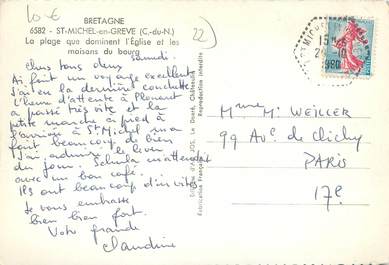 10 €
BRETAGNE
22
6582 - ST-MICHEL-en-GREVE (C.-du-N.)
La plage que dominent l'Église et les
maisons du bourg
samedi.
Chers tous deux
Ai fait un voyage excellent
J'ai eu la dernière couchette
L'heure d'attente à Plouaret
a passé très vite et la
petite marche à pied à
l'arrivée à St Michel m'a
fait beaucoup de bien
J'ai admiré le lever
du jour. m'attendait
avec un bon café.
Ils ont beaucoup d'invités
Je vous embrasse
bien bien fort.
Votre grande
Claudine
Éditions d'Art JOS, Le Doaré, Châteaulin
Fabrication Française
Reproduction interdite
15
1960
M. Mme WEILLER
99 Av. de Clichy
PARIS
17e